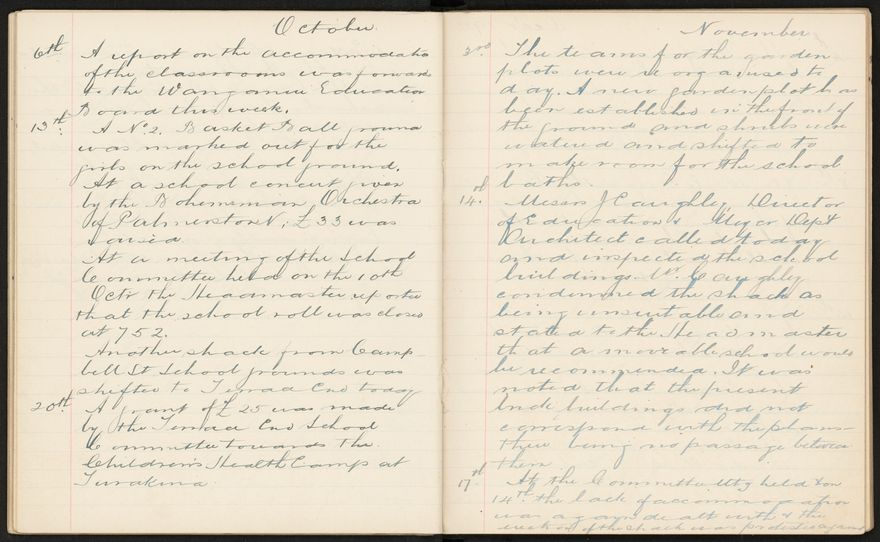 October
6th A report on the accommodation
of the classrooms was forwarded
to the Wanganui Education
Board this week.
13th. A No 2. Basket Ball ground
was marked out for the
girls on the school ground.
At a school concert given
by the Bohemian Orchestra
of Palmerston N, £33 was
raised
At a meeting of the School
Committee held on the 10th
Octr the Headmaster reported
that the school roll was closed
at 752.
Another shack from Camp-
bell St School grounds was
shifted to Terrace End today
20th. A grant of £25 was made
by the Terrace End School
Committee towards the
Children's Health Camp at
Turakina
November
The teams for the garden
plots were re organised to
day. A new garden plot has
been established in the front of
the ground and shrubs were
watered and shifted to
make room for the school
baths.
14. Messrs J Caughley, Director
of Education & Dept
Architect called today
and inspected the school
buildings. Mr. Caughley
condemned the shack as
being unsuitable and
stated to the Headmaster
that a moveable school would
be recommended. It was
noted that the present
buildings did not
correspond with the plans-
there being no passage between
them
17. At the Committee Mtg held on
14th the lack of accommodation
was again dealt with & the
erection of the shack was protested against